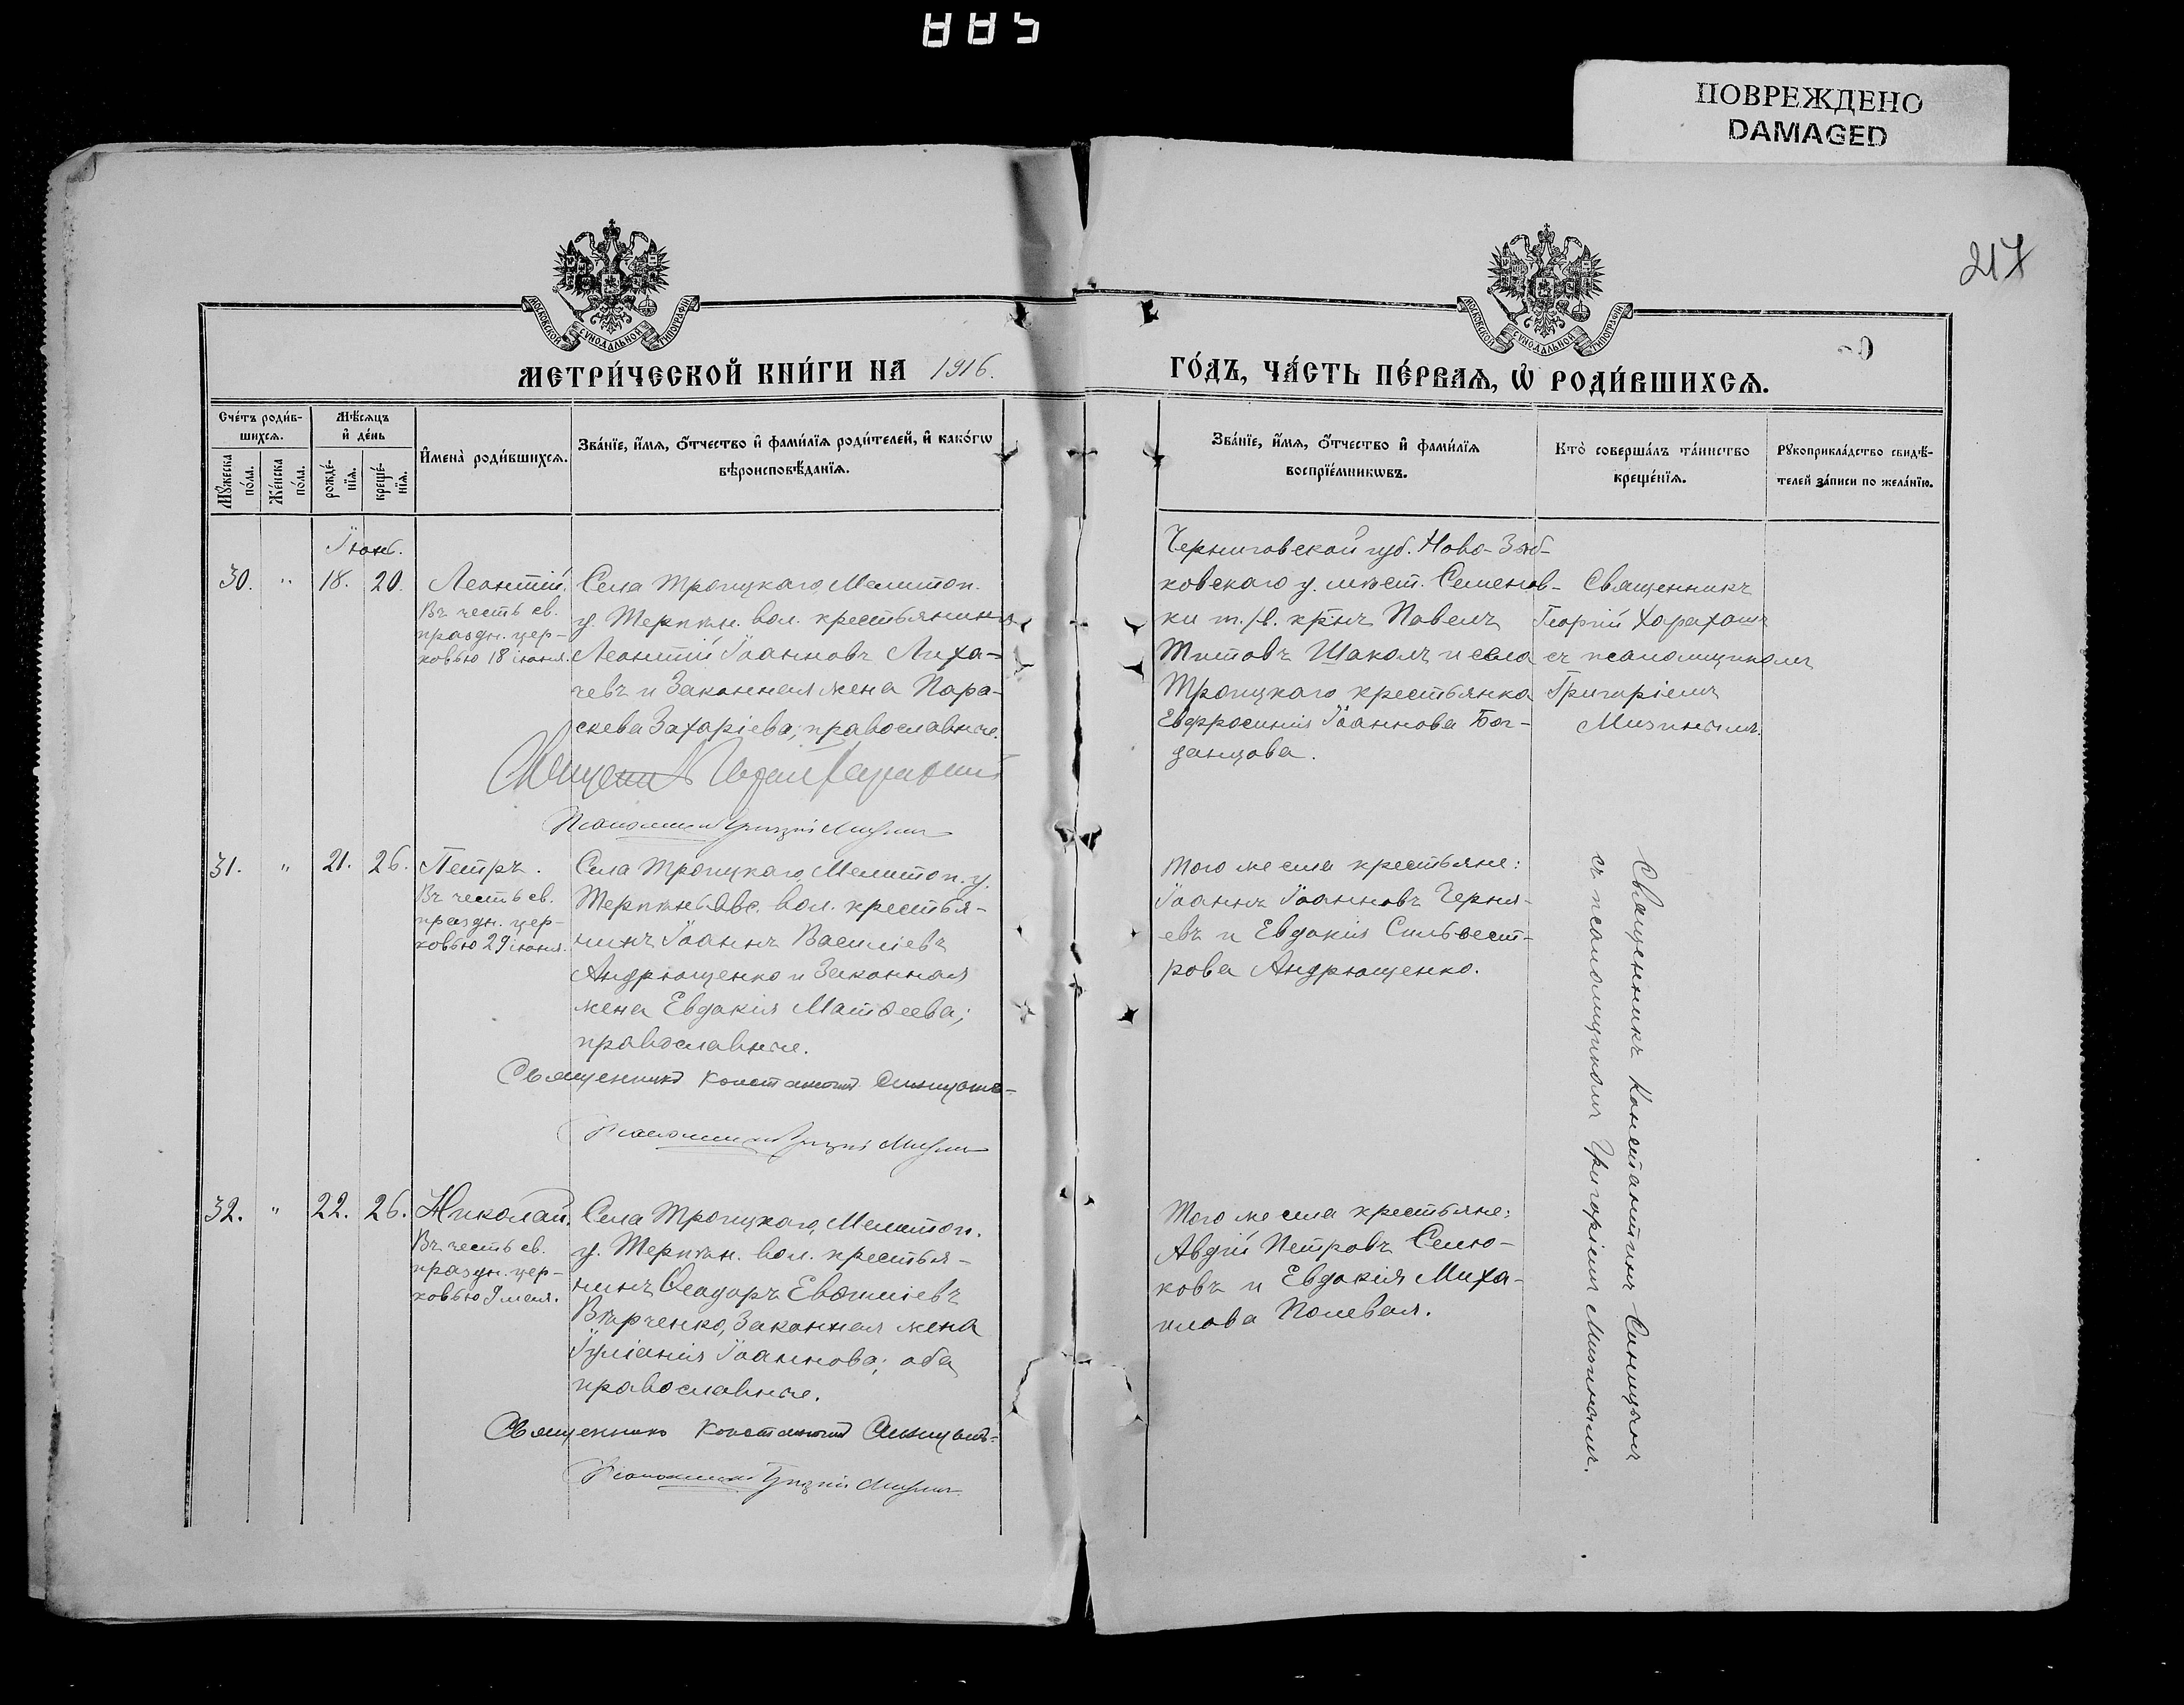 885
ПОВРЕЖДЕНО
DAMAGED
217
МОСКОВСКОЙ СѴНОДАЛЬНОЙ ТИПОГРАФІИ
МОСКОВСКОЙ СѴНОДАЛЬНОЙ ТИПОГРАФІИ
МЕТРИ́ЧЕСКОЙ КНИ́ГИ НА 1916.
ГО́ДЪ, ЧА́СТЬ ПЕ́РВАѦ, Ѡ҆ РОДИ́ВШИХСѦ.
Сче́тъ роди́в-
шихсѧ.
Мѣ́сѧцъ
и҆ де́нь
Мꙋ́жеска
по́ла.
Же́нска
по́ла.
рожде́-
нїѧ.
креще́-
нїѧ.
И҆мена̀ роди́вшихсѧ.
Зва́нїе, и҆́мѧ, ѻ҆́тчество и҆ фами́лїѧ роди́телей, и҆ како́гѡ
вѣроисповѣ́данїѧ.
Зва́нїе, и҆́мѧ, ѻ҆́тчество и҆ фами́лїѧ
воспрїе́мникѡвъ.
Кто̀ соверша́лъ та́инство
креще́нїѧ.
Рꙋкоприкла́дство свидѣ́-
телей за́писи по жела́нїю.
Іюнь.
30. " 18. 20. Леонтій.
Въ честь св.
праздн. цер-
ковью 18 іюня.
Села Троицкаго, Мелитоп.
у. Терпѣн. вол. крестьянинъ
Леонтій Іоанновъ Лиха-
чевъ и Законная жена Пара-
скева Захаріева; православные.
Черниговской губ. Ново-Зыб-
ковскаго у. мѣст. Семенов-
ки
Павелъ
Титовъ Шаколъ и села
Троицкаго крестьянка
Евфросинія Іоаннова Бог-
данцова.
Священникъ
Георгій
съ псаломщикомъ
Григоріемъ
Мизинымъ.
Псаломщикъ Григорій Мизинъ
31. " 21. 26. Петръ.
Въ честь св.
праздн. цер-
ковью 29 іюня.
Села Троицкаго, Мелитоп. у.
Терпѣньевс. вол. крестья-
нинъ Іоаннъ Василіевъ
Андрющенко и Законная
жена Евдокія Матѳеева;
православные.
Священникъ Константинъ Синицынъ
Псаломщикъ Григорій Мизинъ
Того же села крестьяне:
Іоаннъ Іоанновъ Черня-
евъ и Евдокія Сильвест-
рова Андрющенко.
Священникъ Константинъ Синицынъ
съ псаломщикомъ Григоріемъ Мизинымъ.
32. " 22. 26. Николай.
Въ честь св.
праздн. цер-
ковью 9 мая.
Села Троицкаго, Мелитоп.
у. Терпѣн. вол. крестья-
нинъ Ѳеодоръ Евѳиміевъ
Вѣрченко, Законная жена
Іуліанія Іоаннова; оба
православные.
Священникъ Константинъ Синицынъ
Псаломщикъ Григорій Мизинъ
Того же села крестьяне:
Авдій Петровъ Селю-
ковъ и Евдокія Миха-
илова Полевая.